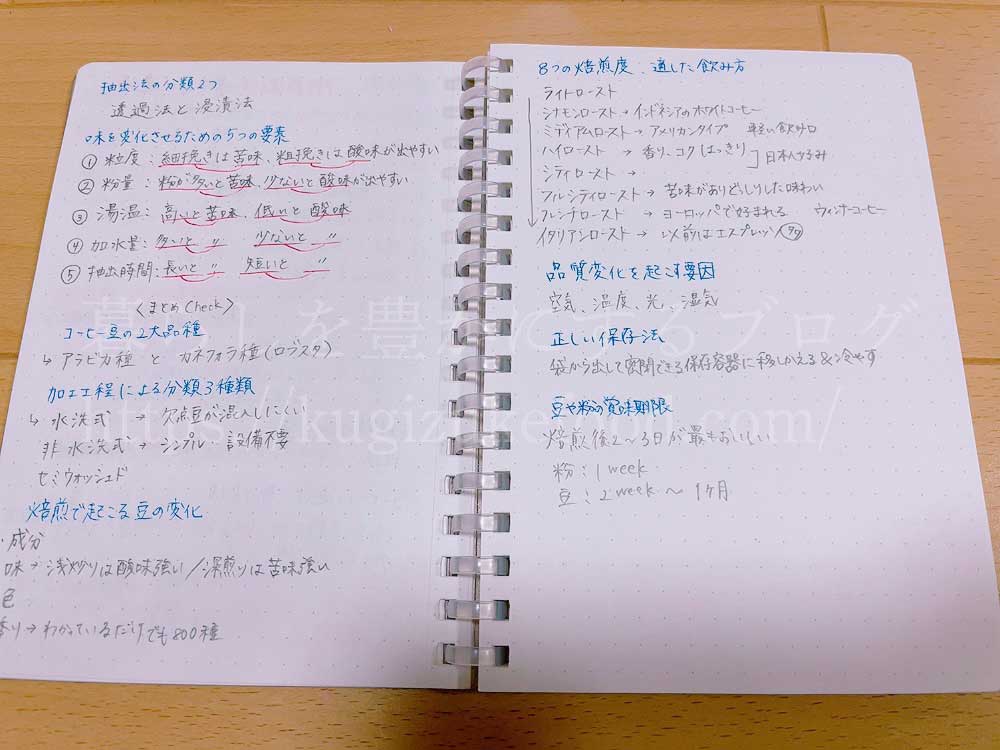 抽出法の分類2つ
透過法と浸漬法
味を変化させるための5つの要素
① 粒度：細挽きは苦味、粗挽きは酸味が出やすい
② 粉量：粉が多いと苦味、少ないと酸味が出やすい
③ 湯温：高いと苦味、低いと酸味
④ 加水量：多いと 〃 少ないと 〃
⑤ 抽出時間：長いと 〃 短いと 〃
〈まとめ Check〉
コーヒー豆の2大品種
↳ アラビカ種 と カネフォラ種(ロブスタ)
加工工程による分類3種類
↳ 水洗式 → 欠点豆が混入しにくい
非水洗式 → シンプル 設備不要
セミウォッシュド
焙煎で起こる豆の変化
・成分
味→浅炒りは酸味強い/深煎りは苦味強い
色
香り→わかっているだけでも800種
8つの焙煎度、適した飲み方
ライトロースト
シナモンロースト→インドネシアのホワイトコーヒー
ミディアムロースト→アメリカンタイプ 軽い飲み口
ハイロースト → 香り、コクはっきり
シティロースト → 日本人好み
フルシティロースト→ 苦味がありどっしりした味わい
フレンチロースト → ヨーロッパで好まれる ウィンナーコーヒー
イタリアンロースト→ 以前はエスプレッソ
品質変化を起こす要因
空気、温度、光、湿気
正しい保存法
袋から出して密閉できる保存容器に移しかえる&冷やす
豆や粉の賞味期限
焙煎後2〜3日が最もおいしい
粉：1 week
豆：2 week 〜 1ヶ月
暮らしを豊かにするブログ